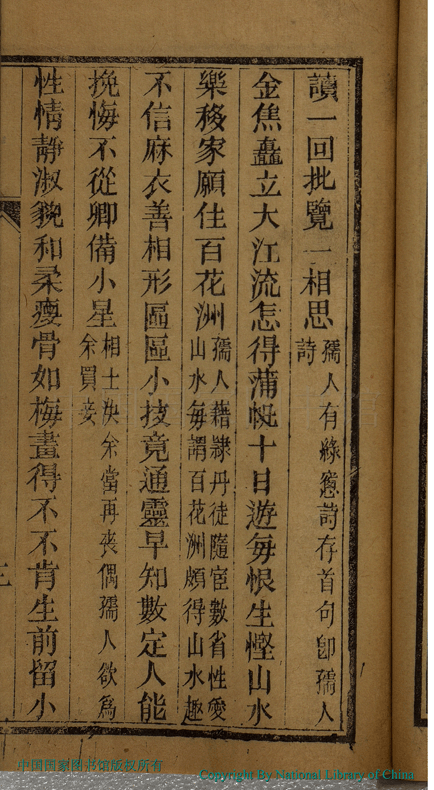 讀一回批覽一相思孺人有綠窻詩存首句卽孺人詩
金焦矗立大江流怎得蒲帆十日遊每恨生慳山水
樂移家願住百花洲孺人籍隸丹徒隨宦數省性愛山水每謂百花洲頗得山水趣
不信麻衣善相形區區小技竟通靈早知數定人能
挽悔不從卿備小星相士決余當再喪偶孺人欲爲余買妾
性情靜淑貌和柔瘦骨如梅畫得不不肯生前留小
三
中国国家图书馆版权所有
Copyright By National Library of China